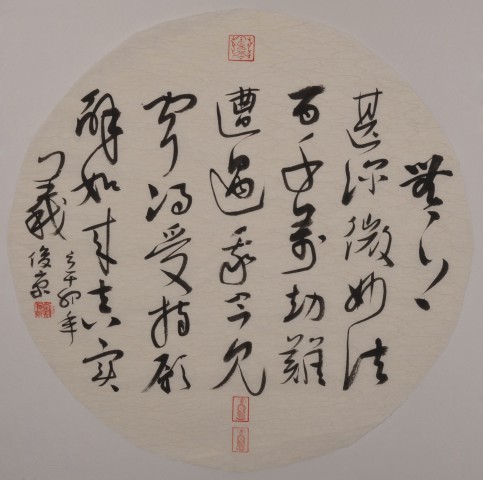 無上
甚深微妙法
百千萬劫難
遭遇我今見
聞得受持願
解如來真實
義
辛卯年
俊